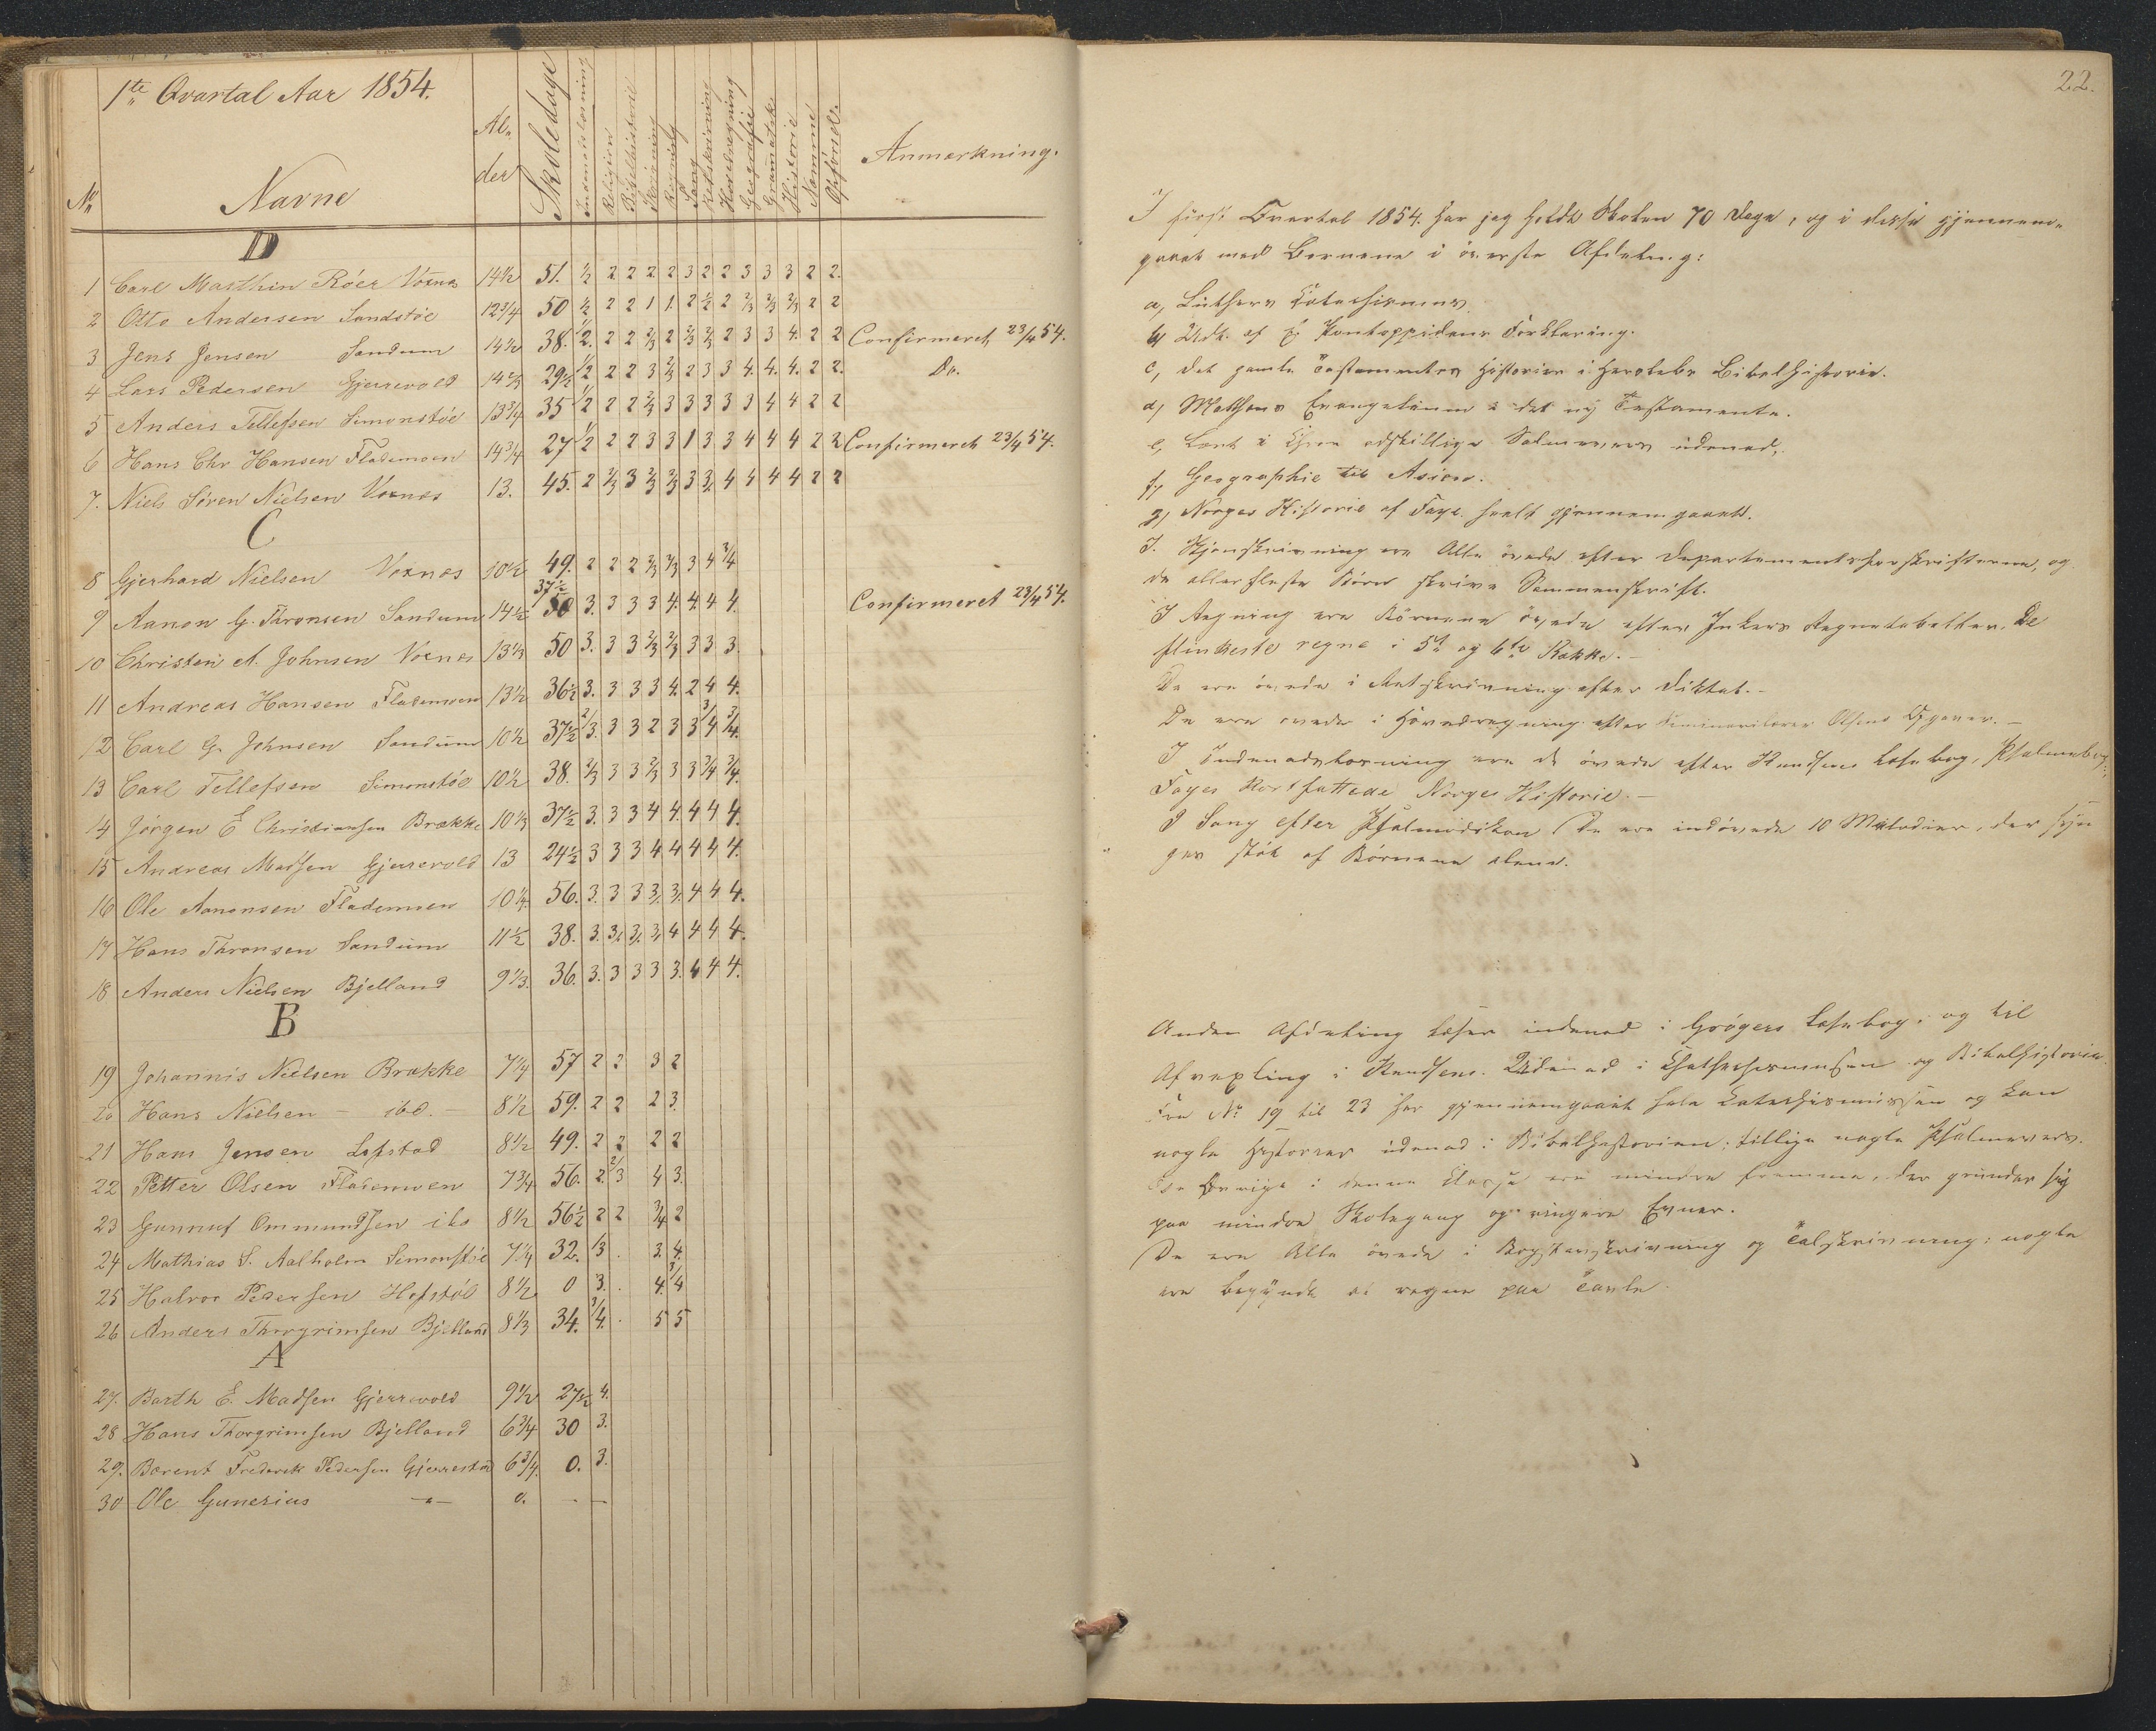 1te Qvartal Aar 1854.
No Navne Alder Skoledage Indenadslæsning Religion Bibelhistorie Skrivning Regning Sang Retskrivning Hovedregning Geografie Gramatik Historie Nemme Opførsel. Anmerkning.
D
1 Carl Marthin Róer Voxnes 14½ 51. ½ 2 2 2 2 3 2 2 3 3 3 2 2.
2 Otto Andersen Sandstöe 12¾ 50 ½ 2 2 1 1. 2 ½ 2 2/3 2/3 2/3 2 2
3 Jens Jensen Sandum 14½ 38. ½. 2 2 2/3 2 2/3 2/3 2 3 3 4. 2 2 Confirmeret 23/4 54.
4 Lars Pedersen Gjerrevold 14 2/3 29½ ½ 2 2 3 2/3 2 3 3 4. 4. 4. 2 2. Do.
5 Anders Tellefsen Simonstöe 13¾ 35 ½ 2 2 2/3 3 3 3 3 3 4 4 2 2
6 Hans Chr Hansen Flademoen 14¾ 27 ½ 2 2 3 3 1 3 3 4 4 4 2 2 Confirmeret 23/4 54.
7. Niels Sören Nielsen Voxnes 13. 45. 2 2/3 3 2/3 2/3 3 3/4 4 4 4 4 2 2
C
8 Gjerhard Nielsen Voxnes 10½ 49. 2 2 2 2/3 2/3 3 4 3/4
37½
9 Aanon G. Thronsen Sandum 14½ 50 3. 3 3 3 4. 4. 4. 4. Confirmeret 23/4 54.
10 Christen A. Johnsen Voxnes 13 1/3 50 3. 3 3 2/3 2/3 3 3 3.
11 Andreas Hansen Flademoen 13½ 36½ 3. 3 3 3 4. 2 4 4.
12 Carl G. Johnsen Sandum 10½ 37½ 2/3. 3 3 2 3 3 3/4 3/4.
13 Carl Tellefsen Simonstöe 10½ 38. 2/3 3 3 2/3 3 3 3/4 3/4.
14 Jörgen E Christiansen Brække 10 1/3 37½ 3. 3 3 4 4. 4 4 4.
15 Andreas Madsen Gjerrevold 13 24½ 3 3 3 4 4 4 4 4.
16 Ole Aanonsen Flademoen 10¼ 56. 3. 3 3 3/4 3/4 4 4 4.
17 Hans Thronsen Sandum 11½ 38. 3. 3/4 3/4 3/4 4 4 4 4.
18 Anders Nielsen Bjelland 9 1/3. 36. 3. 3 3 3 3. 4 4 4.
B
19 Johannis Nielsen Brække 7¼ 57 2 2 3 2
20 Hans Nielsen – ibd. – 8½ 59. 2 2 2 3.
21 Hans Jensen Lofstad 8½ 49. 2 2 2 2
22 Petter Olsen Flademoen 7¾ 56. 2. 2/3 4 3.
23 Gunnuf Ommundsen 8½ 56½ 2 2 3/4 2
24 Mathias S. Aalholm Simonstöe 7¼ 32. 3 . 3. 4.
25 Halvor Pedersen Hofstöl 8½ 0 3. . 4. 3/4
26 Anders Thorgrimsen Bjelland 8 1/3 34. 3/4. . 5 5
A
27. Barth E. Madsen Gjerrevold 9½ 27½ 4.
28 Hans Thorgrimsen Bjelland 6¾ 30 3.
29. Berent Frederik Pedersen Gjerrestad 6¾. 0. 3.
30 Ole Gunerius –"– 0. – –
22.
I först Qvartal 1854. har jeg holdt Skolen 70 Dage, og i disse gjennem-
gaaet med Bornene i överste Afdeling:
a, Luthers Catechismus.
b, Udt. af E. Pontoppidans Forklaring.
c, Det gamle Testamentes Historier i Herslebs Bibelhistorie.
d, Matthæus Evangelium i det ny Testamente.
e, Lært i Chor adskillige Salmevers udenad.
f, Geographie til Asien.
g, Norges Historie af Faye. heelt gjennemgaaet.
I. Skjønskrivning ere Alle övede efter Departementsforskrifterne, og
de allerfleste Börn skrive Sammenskrift.
I Regning ere Börnene övede efter Inkers Regnetabeller. De
flinkeste regne i 5te og 6te Række. –
De ere övede i Retskrivning efter Diktat. –
De ere övede i Hovedregning efter Seminarilærer Olsens Opgaver. –
I Indenadslæsning ere de övede efter Knudsens Læsebog, Psalmebog,
Fayes kortfattede Norges Historie. –
I Sang efter Psalmodikon. De ere indövede 10 Melodier, der syn-
ges stök af Börnene alene.
Anden Afdeling læser indenad i Grögers Læsebog, og til
Afvexling i Knudsens. Udenad i Chatechismusen og Bibelhistorie.
Fra No 19 til 23 har gjennemgaaet hele Catechismussen og kan
nogle Historier udenad i Bibelhistorien; tillige nogle Psalmevers.
De Övrige i denne Classe ere mindre fremme, der grunder sig
paa mindre Skolegang og ringere Evner.
De ere Alle övede i Bogstavskrivning og Talskrivning; nogle
ere begyndt at regne paa Tavle.